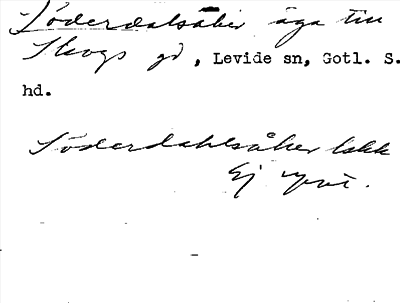 Söderdalsåker äga till
Skogs gd, Levide sn, Gotl. S.
hd.
Söderdahlsåker
Ej